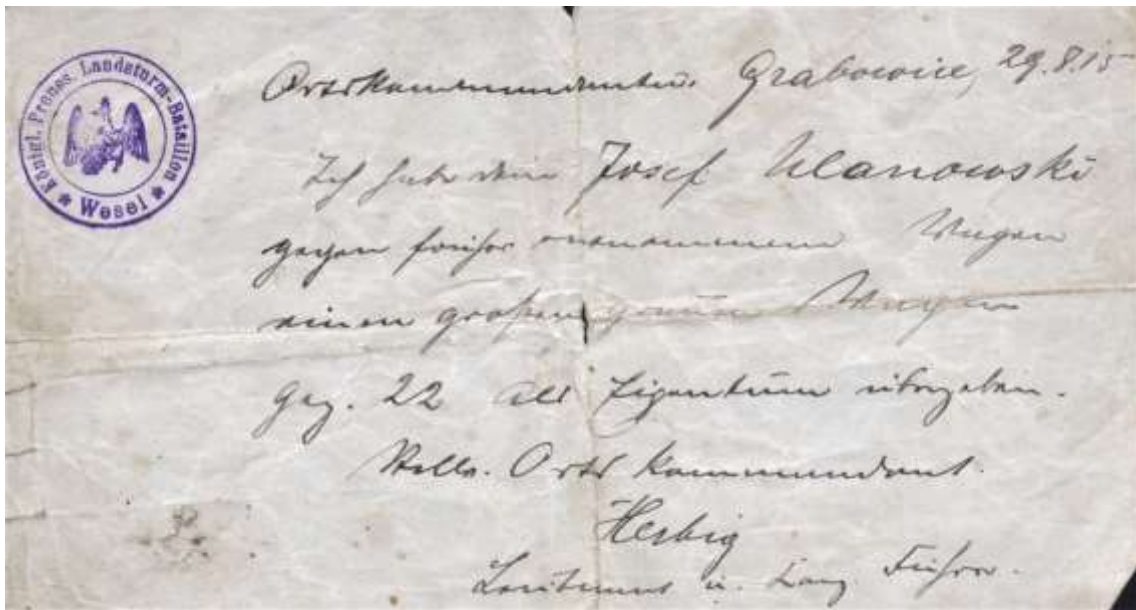 Königl. Preuss. Landsturm-Bataillon
* Wesel *
Ortskommandantur. Grabowice, 29.8.15
Ich habe dem Josef Ulanowski
gegen früher genommenen Wagen
einen großen grauen Wagen
gez. 22 als Eigentum übergeben.
Stellv. Orts Kommandant.
Herbig
Leutnant u. Führer.